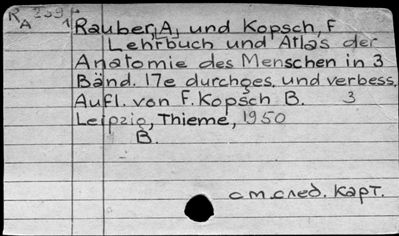 Rauber, A, und Kopsch, F
Lehrbuch und Atlas der
Anatomie des Menschen in 3
Bänd. 17e durchges. und verbess.
Aufl. von F. Kopsch B. 3
Leipzig, Thieme, 1950
B.
см.след. карт.